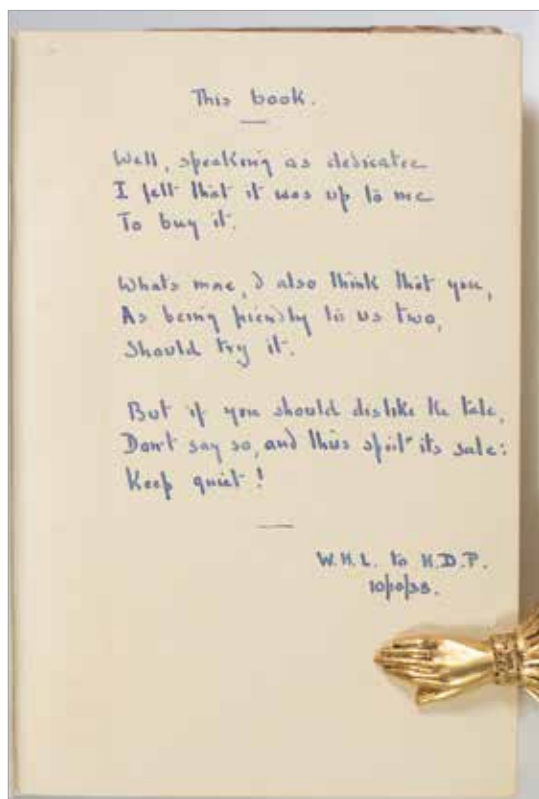 This book.
Well, speaking as dedicatee
I felt that it was up to me
To buy it.
Whats more, I also think that you,
As being friendly to us two,
Should try it.
But if you should dislike the tale,
Don't say so, and thus spoil its sale:
Keep quiet!
W.H.L. to H.D.P.
10/10/38.